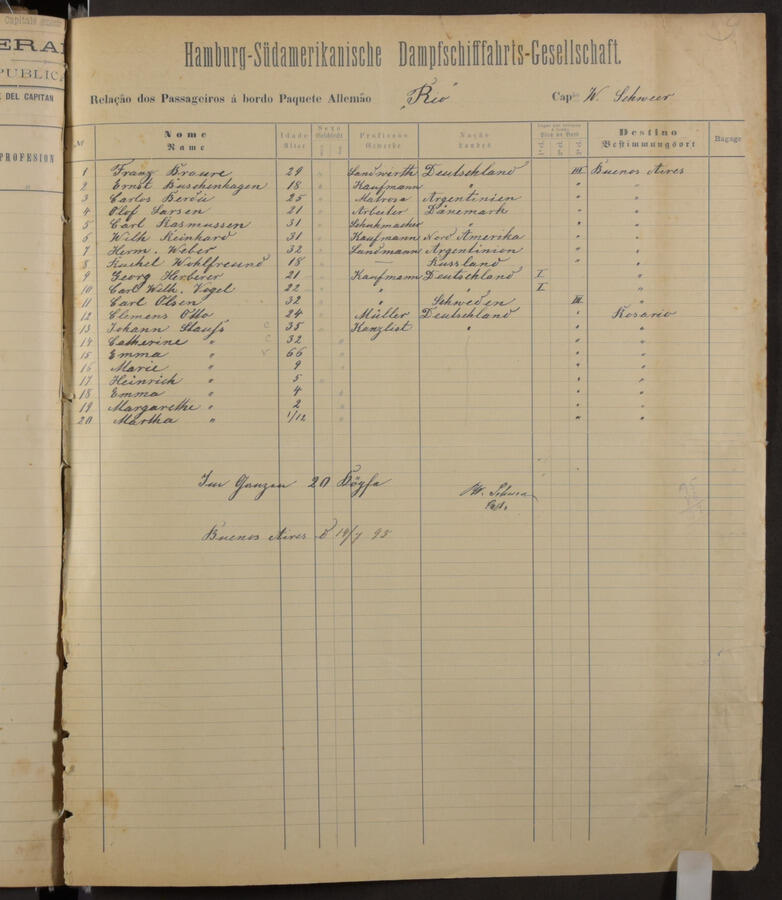 Capitale
ERA
PUBLICA
DEL CAPITAN
PROFESION
Hamburg-Südamerikanische Dampfschifffahrts-Gesellschaft.
Relação dos Passageiros á bordo Paquete Allemão "Rio" Cap W. Schweer
Nº Nome Name Idade Alter Sexo Geschlecht Profissão Gewerbe Nação Landes Destino Bestimmungsort Bagage
1 Franz Braure 29 " Landwirth Deutschland III Buenos Aires
2 Ernst Buschenhagen 18 " Kaufmann " " "
3 Carlos 25 " Matrose Argentinien " "
4 Olof Larsen 21 " Arbeiter Dänemark " "
5 Carl Rasmussen 31 " Schuhmacher " " "
6 Wilh Reinhard 31 " Kaufmann Nord Amerika " "
7 Herm. Weber 32 " Landmann Argentinien " "
8 Ruchel Wohlfreund 18 " Russland " "
9 Georg Herberer 21 " Kaufmann Deutschland I "
10 Carl Wilh. Vogel 22 " " " I "
11 Carl Olsen 32 " " Schweden III "
12 Clemens Otto 24 " Müller Deutschland " Rosario
13 Johann Staufs 35 " Kanzlist " " "
14 Catherine " 32 " " "
15 Emma " 66 " " "
16 Marie " 9 " " "
17 Heinrich " 5 " " "
18 Emma " 4 " " "
19 Margarethe " 2 " " "
20 Martha " 1/12 " " "
Im Ganzen 20 Köpfe
W. Schweer
Cpt.
Buenos Aires 19/7 95